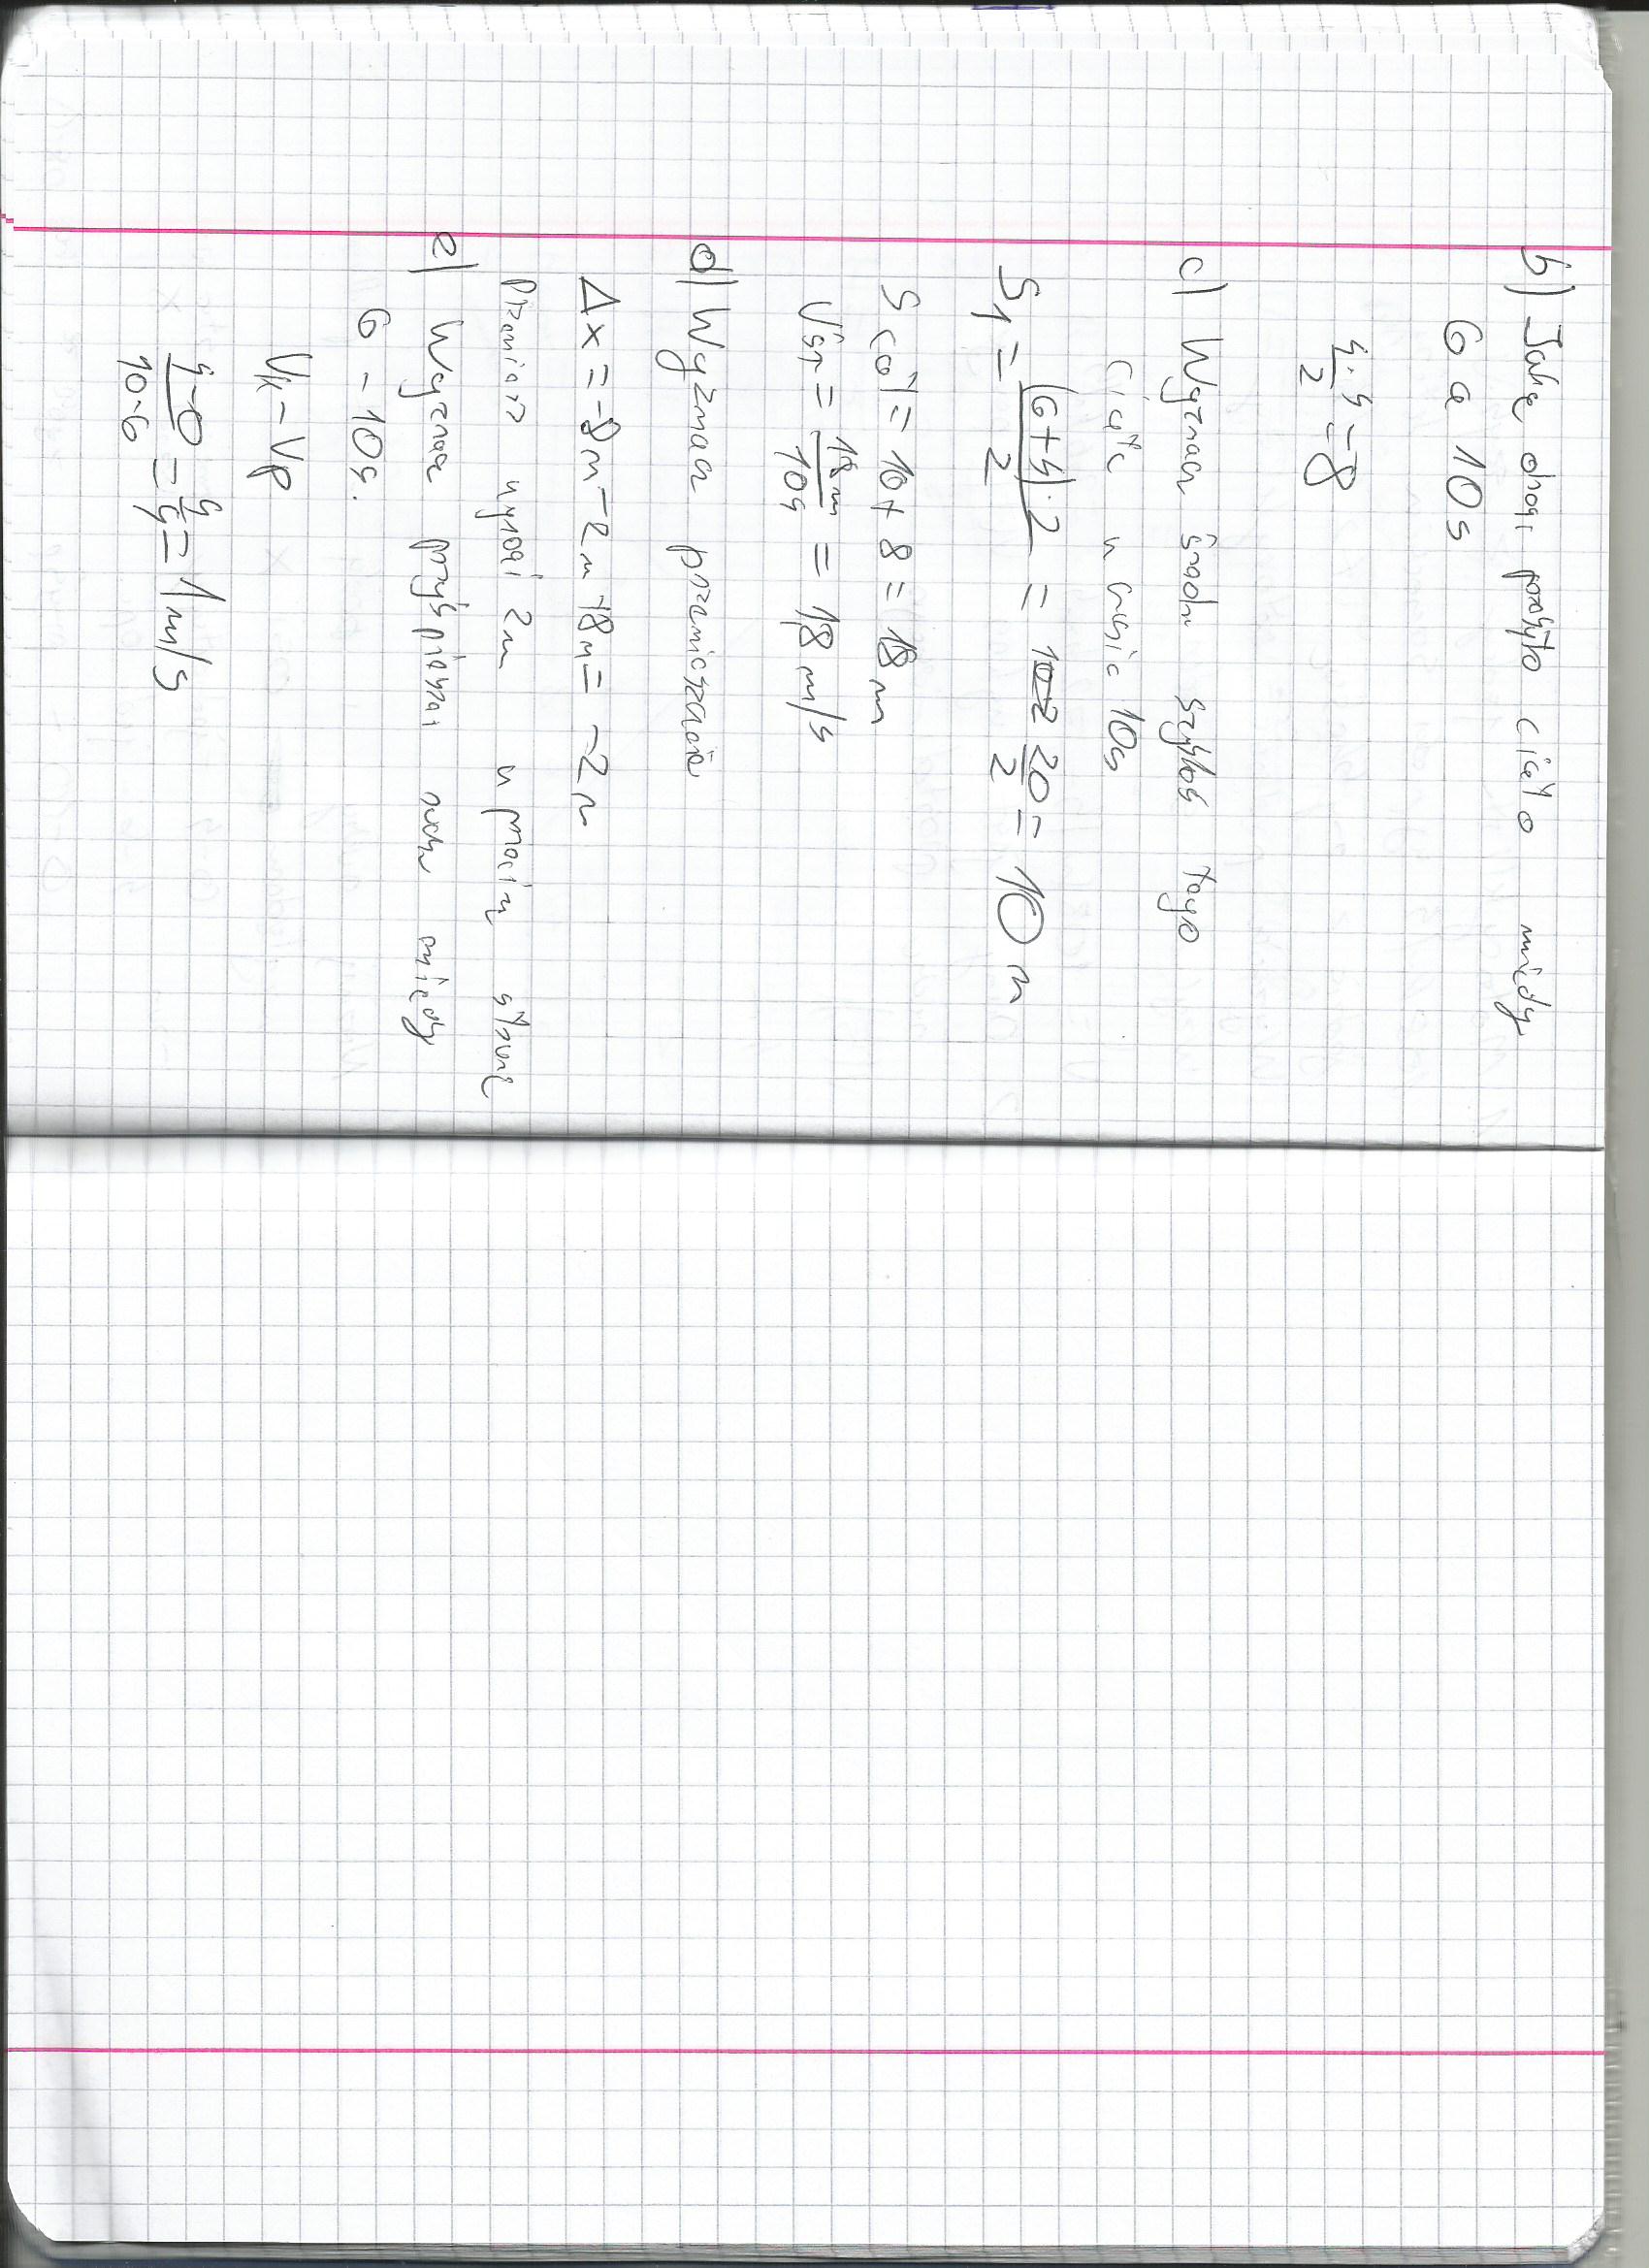 b) Jaką drogę przebyło ciało między
6 a 10s
4·4/2=8
c) Wyznacz średni szybkoś tego
ciała w czasie 10s
S1 = (6+4)·2/2 = 20/2 = 10 m
S cał = 10 + 8 = 18 m
Vśr = 18m/10s = 1,8 m/s
d) Wyznacz przemieszczenie
Δx = -8m - 2m +8m = -2m
Przemieszz wynosi 2m w przeciw stronę
e) Wyznacz przyśpiesz ruchu między
6 - 10s.
Vk - Vp
4-0/10-6 = 4/4 = 1 m/s